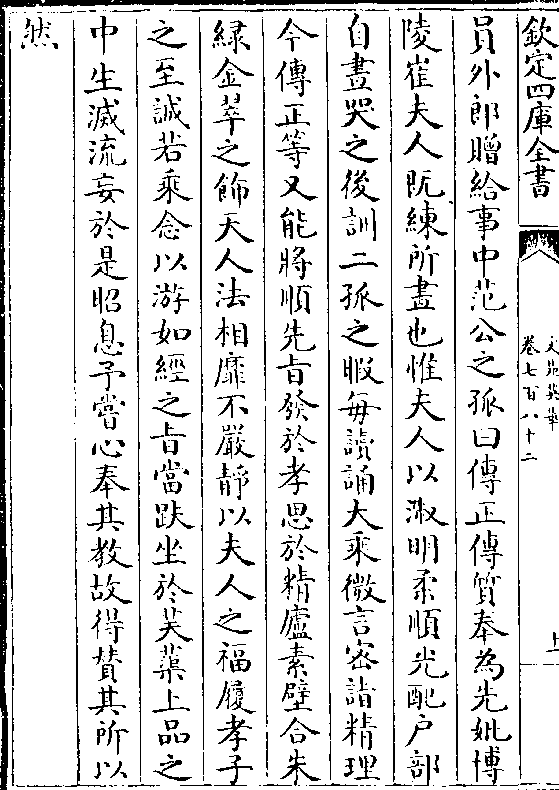 欽定四庫全書
文苑英華
卷七百八十二
上
員外郎贈給事中范公之孤曰傳正傳質奉為先妣博
陵崔夫人既練所畫也惟夫人以淑明柔順光配户部
自晝哭之後訓二孤之暇每讀誦大乘微言密詣精理
今傳正等又能將順先㫖發於孝思於精廬素壁合朱
緑金翠之飾天人法相靡不嚴静以夫人之福履孝子
之至誠若乘念以游如經之㫖當趺坐於芙蕖上品之
中生滅流妄於是昭息予嘗心奉其教故得賛其所以
然